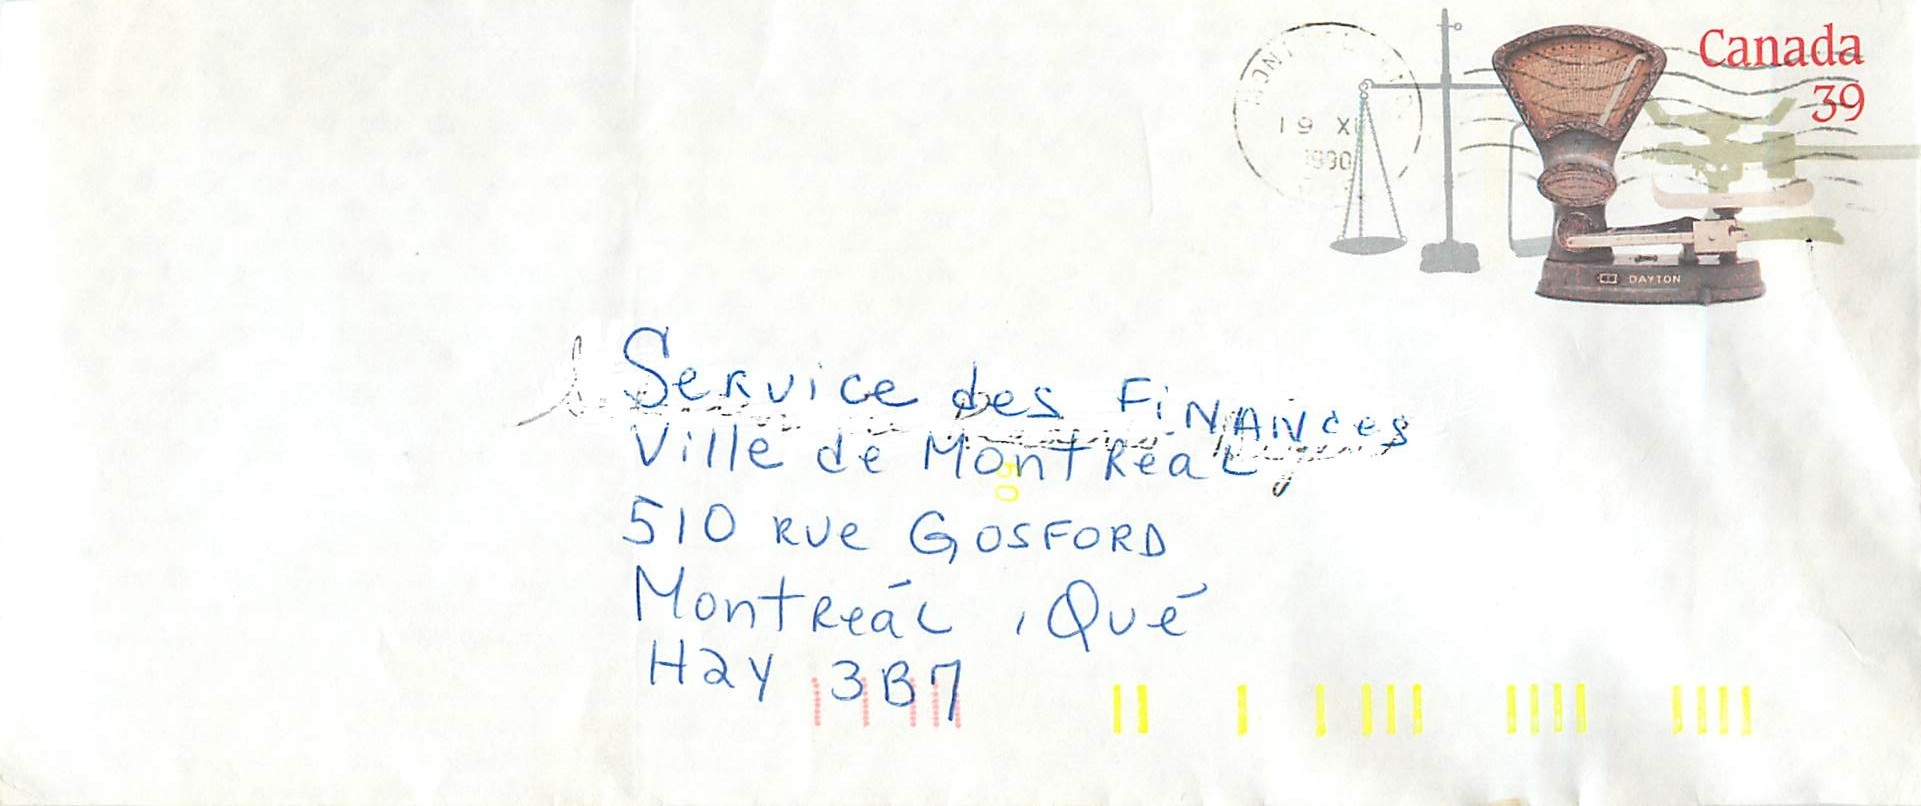 Canada
39
19 XI
1990
DAYTON
Service des Finances
Ville de Montréal
60
510 rue Gosford
Montreál, Qué
H2Y 3B7